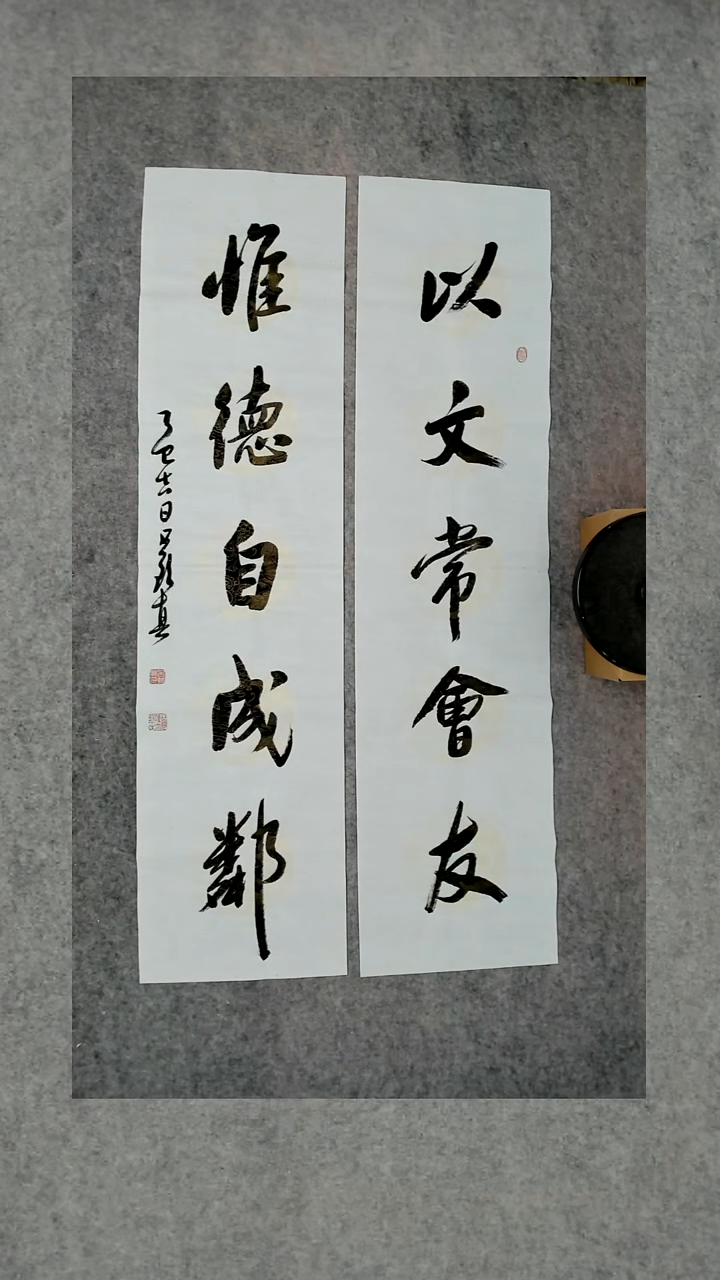 以文常會友
惟德自成鄰